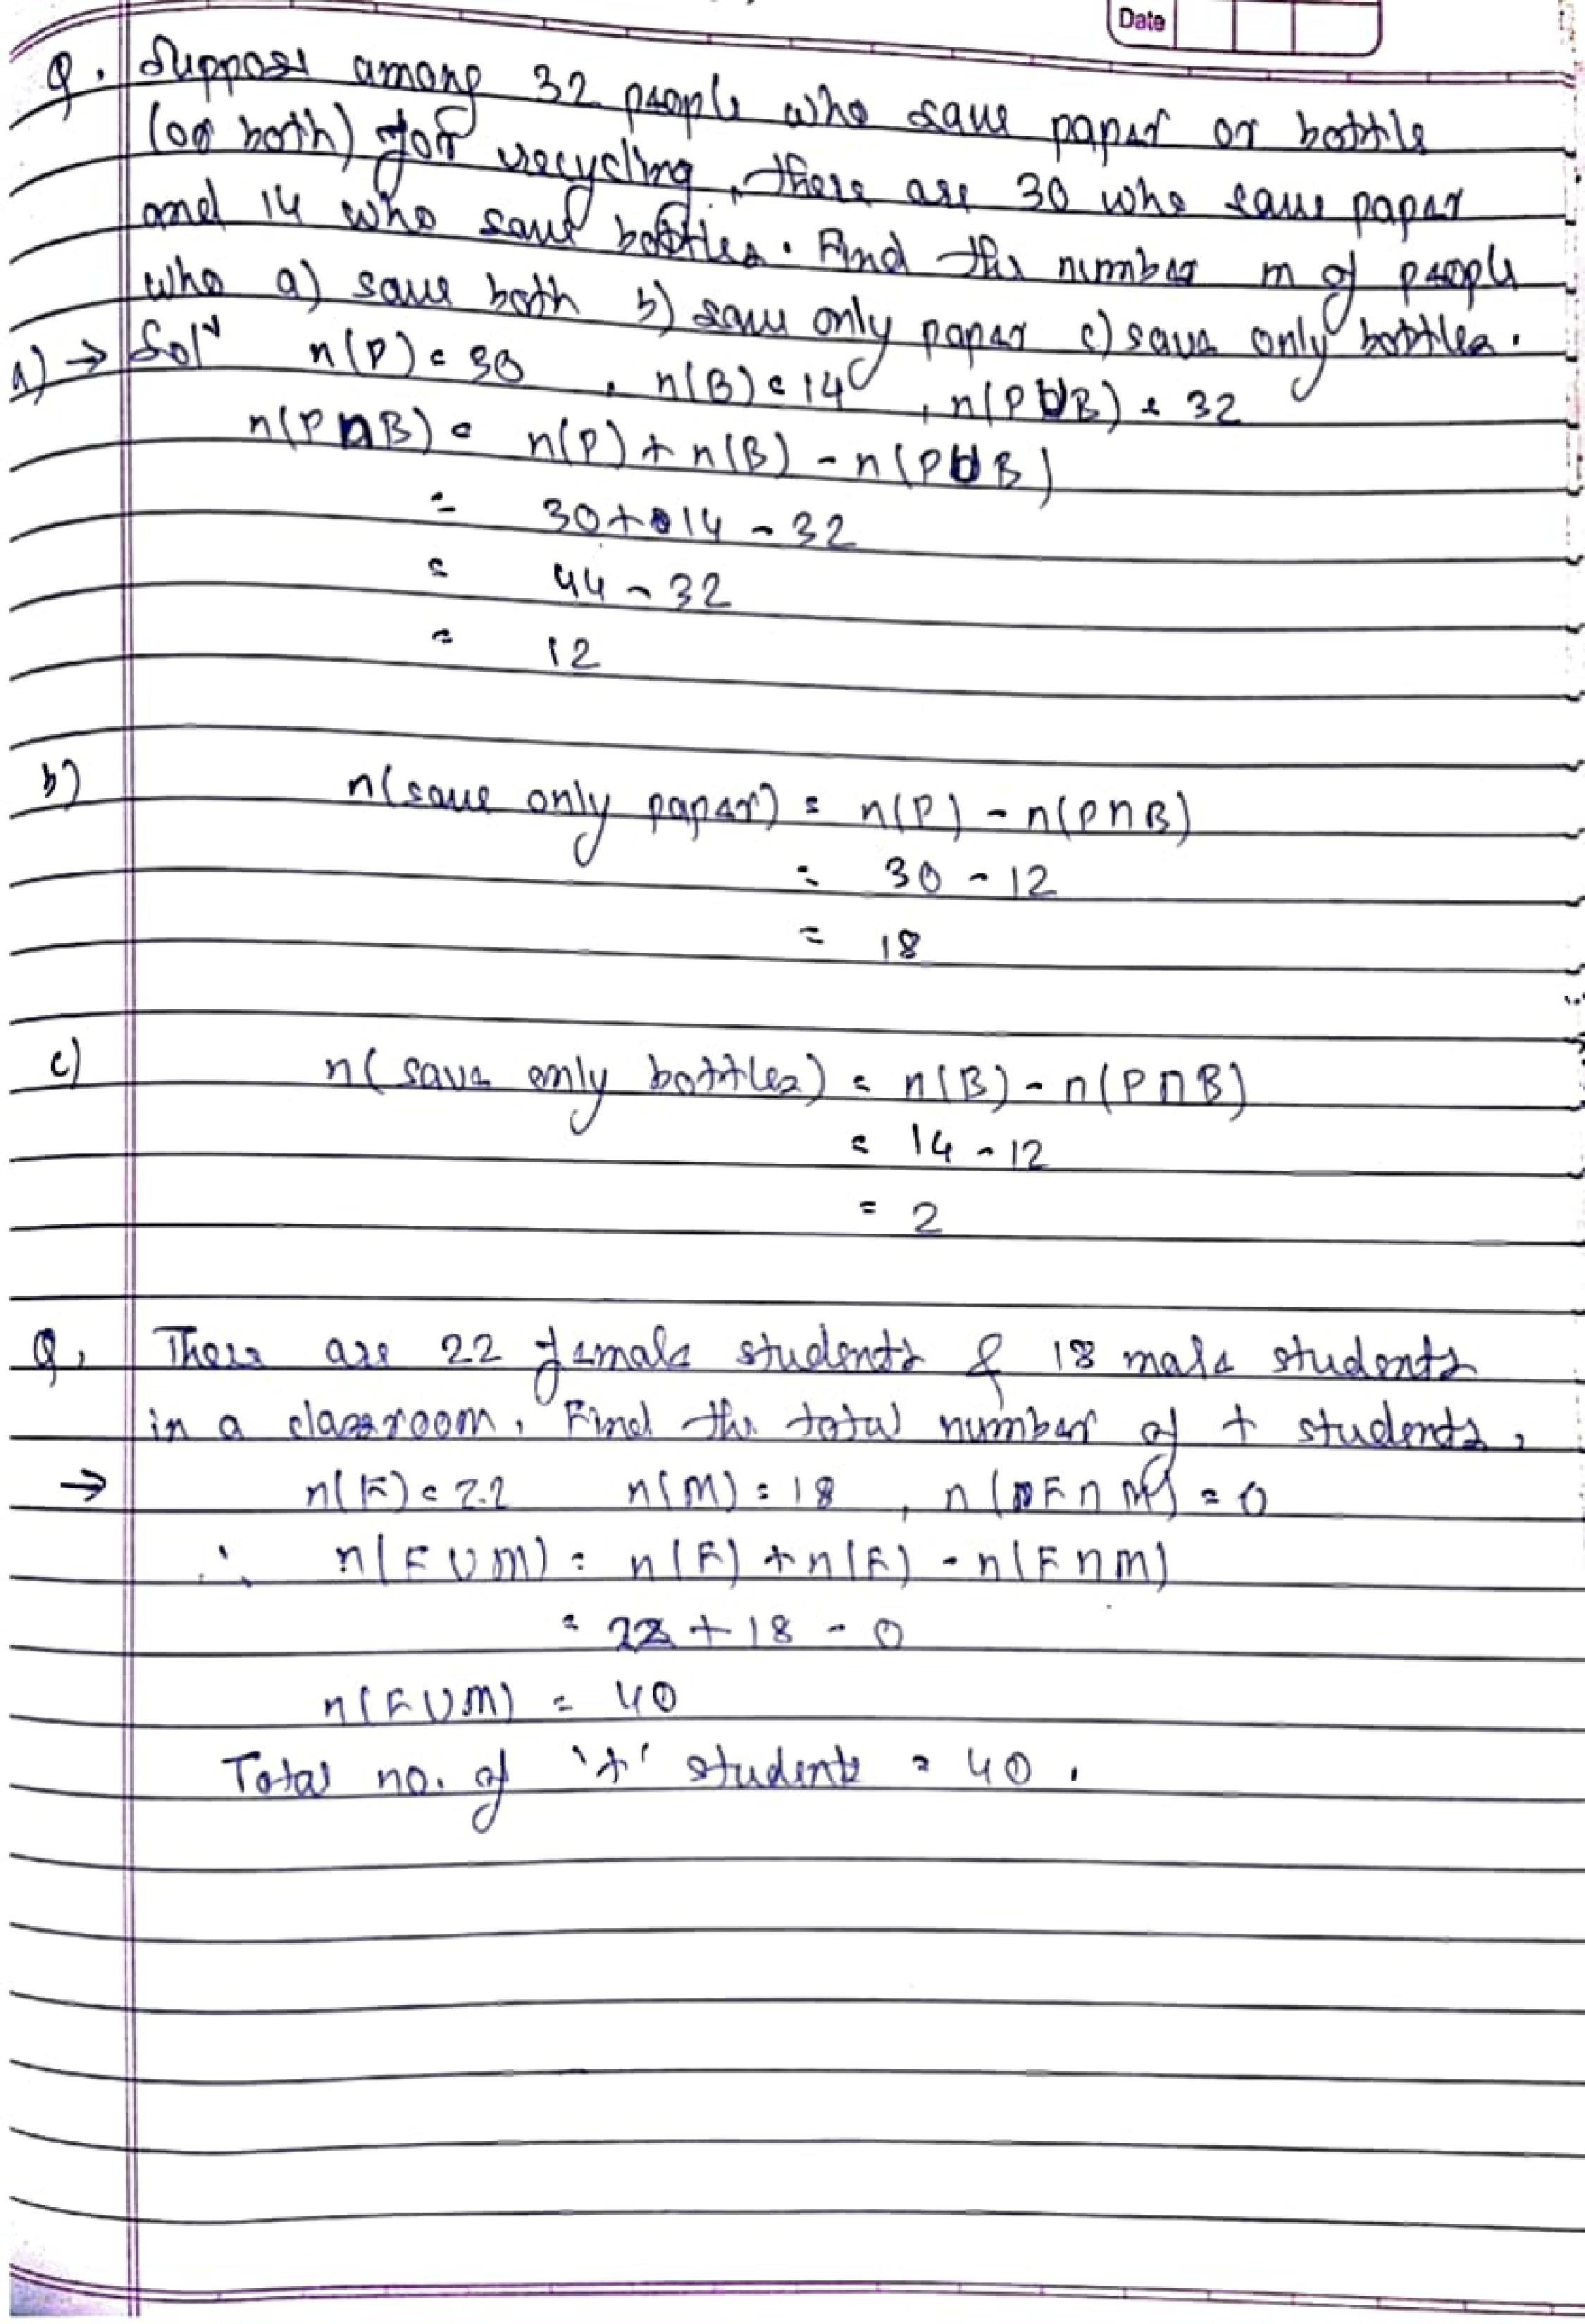 Date
Q. Suppose among 32 people who save paper or bottle
(or both) for recycling, there are 30 who save paper
and 14 who save bottles. Find the number m of people
who a) save both b) save only paper c) save only bottles.
a) → Solⁿ n(P) = 30 , n(B) = 14 , n(P∪B) = 32
n(P∩B) = n(P) + n(B) - n(P∪B)
= 30 + 14 - 32
= 44 - 32
= 12
b) n(save only paper) = n(P) - n(P∩B)
= 30 - 12
= 18
c) n(save only bottles) = n(B) - n(P∩B)
= 14 - 12
= 2
Q. There are 22 female students & 18 male students
in a classroom. Find the total number of t students.
→ n(F) = 22 n(M) = 18 , n(F∩M) = 0
∴ n(F∪M) = n(F) + n(F) - n(F∩M)
= 22 + 18 - 0
n(F∪M) = 40
Total no. of 't' students = 40.